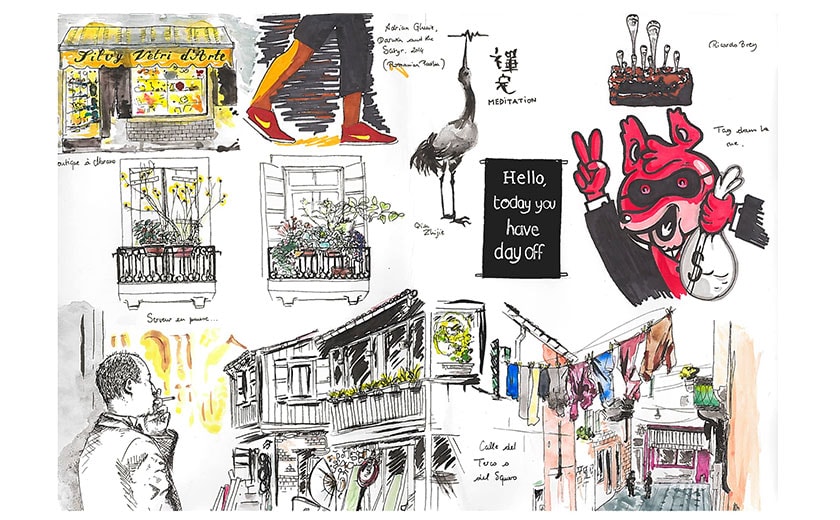 Silvy Vetri d'Arte
Adrian Ghenie,
Darwin and the
Satyr. 2014
禪
定
MEDITATION
Ricardo Brey
Tag dans la
rue.
Boutique à Murano
Hello,
today you
have
day off
Qiu
Zhijie
Serveur en pause...
Calle del
Terco o
del Squero
$